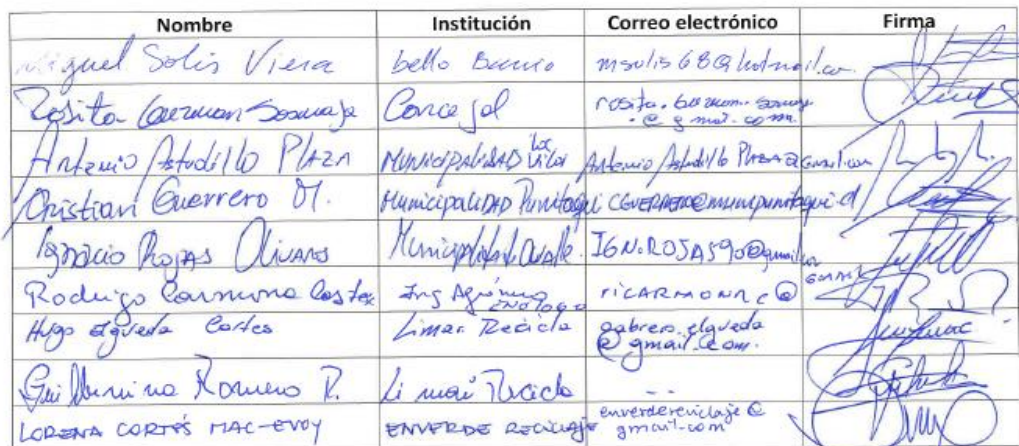 Nombre Institución Correo electrónico Firma
Miguel Solis Viera bello Barrio msolis68@hotmail.com
Rosita Guzman Concejal rosita.guzman.
@gmail.com
Antonio Astudillo Plaza Municipalidad Los Vilos Antonio Astudillo Plaza@gmail.com
Cristian Guerrero M. Municipalidad Punitaqui CGUERRERO@munipunitaqui.cl
Ignacio Rojas Olivares Municipalidad Ovalle IGN.ROJAS90@gmail.com
Rodrigo Carmona Ing Agrónomo ricarmonac@
ENólogo gmail
Hugo elgueda Cortes Limari Recicla gabrero.elgueda
@gmail.com.
Guillermina Romero R. Limari Recicla --
LORENA CORTÉS MAC-EVOY ENVERDE RECICLAJE enverdereciclaje@
gmail.com